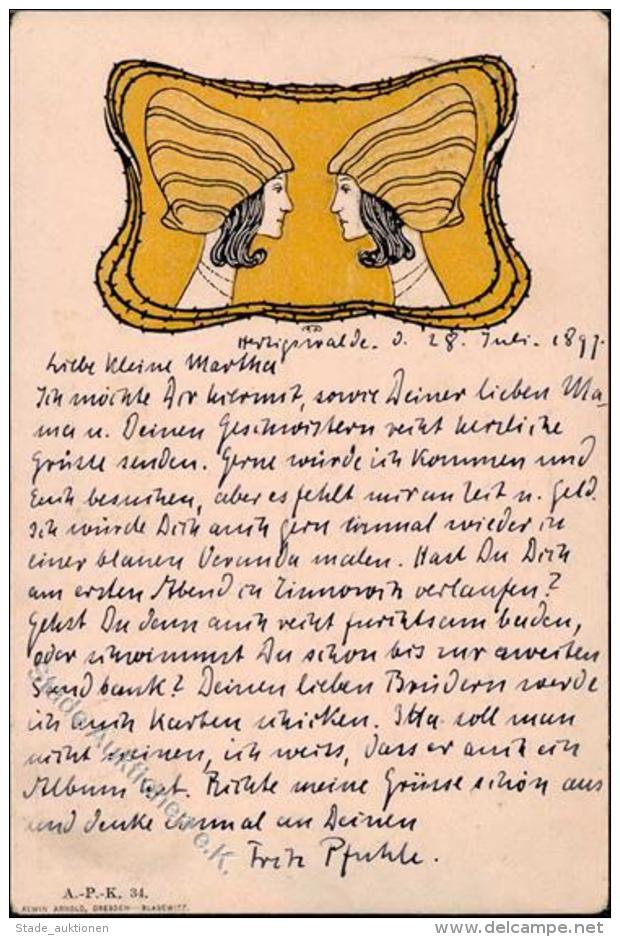 Hertigswalde. d. 28. Juli. 1897.
Liebe kleine Martha
Ich möchte Dir hiermit, sowie Deiner lieben Ma-
ma u. Deinen Geschwistern recht herzliche
Grüsse senden. Gerne würde ich kommen und
Euch besuchen, aber es fehlt mir an Zeit u. Geld.
Ich würde Dich auch gern einmal wieder in
einer blauen Veranda malen. Hast Du Dich
am ersten Abend in Zinnowitz verlaufen?
Gehst Du denn auch recht furchtsam baden,
oder schwimmst Du schon bis zur zweiten
Sandbank? Deinen lieben Brüdern werde
ich auch Karten schicken. Otto soll man
nicht weinen, ich weiss, dass er auch ein
Album hat. Richte meine Grüsse schön aus
und denke einmal an Deinen
Fritz Pfuhle.
A.-P.-K. 34.
ERWIN ARNOLD, DRESDEN-BLASEWITZ.
Stade Auktionen e.K.
Stade_auktionen
www.delcampe.net